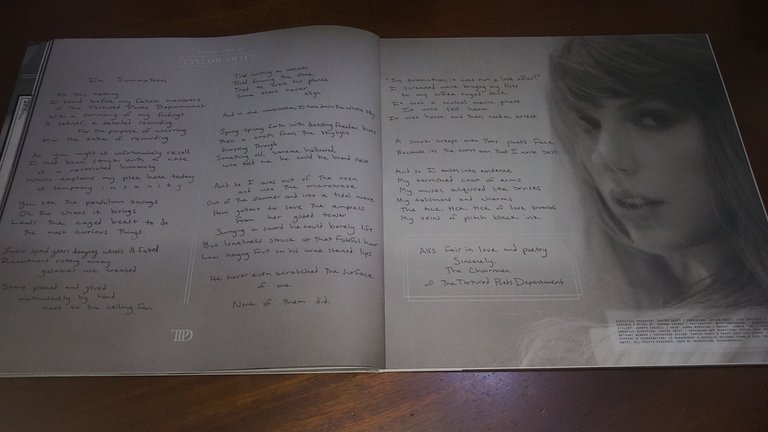 TAYLOR SWIFT
In Summation
At this hearing
I stand before my fellow members
of the Tortured Poets Department
With a summary of my findings
A debrief, a detailed rewinding
For the purpose of warning
For the sake of reminding
As you might all unfortunately recall
I had been struck with a case
of a restricted humanity
Which explains my plea here today
of temporary insanity
You see, the pendulum swings
Oh the chaos it brings
Leads the caged beast to do
the most curious things
Lovers spend years denying what's ill fated
Resentment rotting away
galaxies we created
Stars placed and glued
meticulously by hand
next to the ceiling fan
Tried wishing on comets
Tried dimming the shine
Tried to orbit his planet
Some stars never
align
And in one conversation, I tore down the whole sky
Spring sprung forth with dazzling freedom hues
Then a crash from the skylight
bursting through
Something old, someone hallowed,
who told me he could be brand new
And so I was out of the oven
and into the microwave
Out of the slammer and into a tidal wave
How gallant to save the empress
from her gilded tower
Swinging a sword he could barely lift
But loneliness struck at that fateful hour
Low hanging fruit on his wine stained lips
He never even scratched the surface
of me
None of them did.
TTPD
"In summation, it was not a love affair!"
I screamed while bringing my fists
to my coffee ringed desk
It was a mutual manic phase
It was self harm
It was house and then cardiac arrest
A smirk creeps onto this poet's face
Because it's the worst men that I write best
And so I enter into evidence
My tarnished coat of arms
My muses, acquired like bruises
My talismans and charms
The tick, tick, tick of love bombs
My veins of pitch black ink
All's fair in love and poetry
Sincerely,
The Chairman
of The Tortured Poets Department